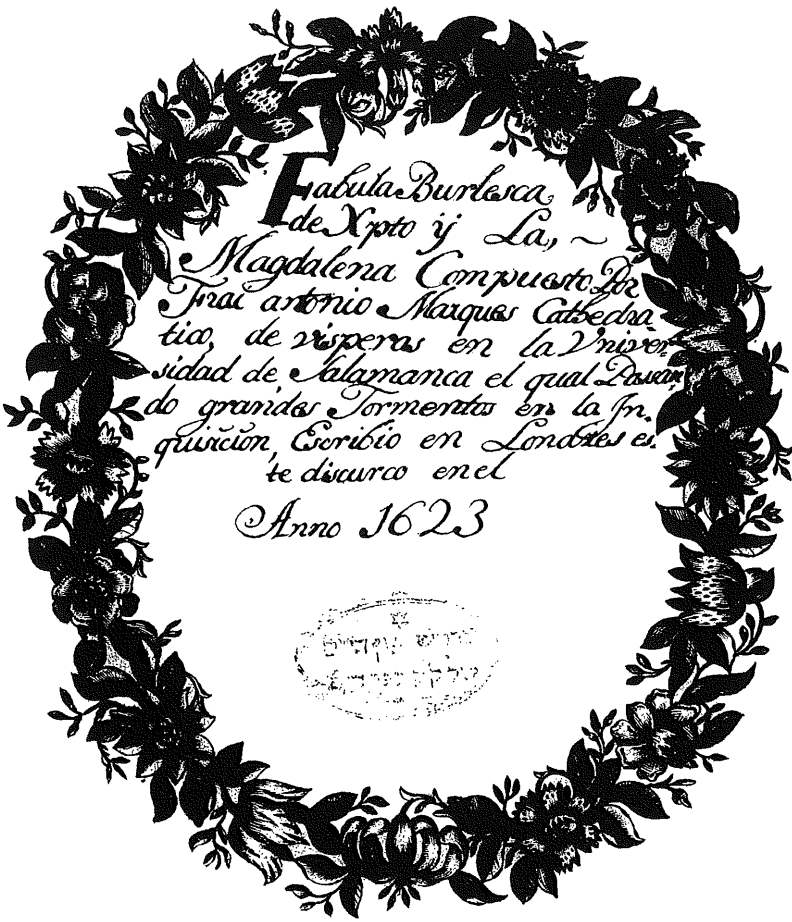 Fabula Burlesca,
de Xpto ÿ La, ~
Magdalena Compuesto Por
Frai antonio Marques Cathedra
tico, de visperas en la Vniver
sidad de Salamanca el qual Passan
do grandes Tormentos en la Jn.
quisicion, Escribio en Londres es.
te discurco en el
Anno 1623